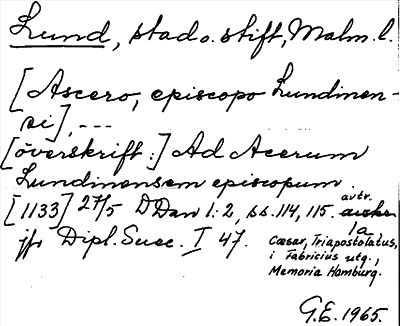 Lund, stad o. stift, Malm. l.
[Ascero, episcopo Lundinen-
si], ---
[överskrift:] Ad Acerum
Lundinensem episcopum
[1133] 27/5 DDan 1:2, ss. 114, 115. avtr.
1a
jfr Dipl. Suec. I 47. Cæsar, Triapostolatus,
i Fabricius utg.,
Memoria Hamburg.
G.E. 1965.